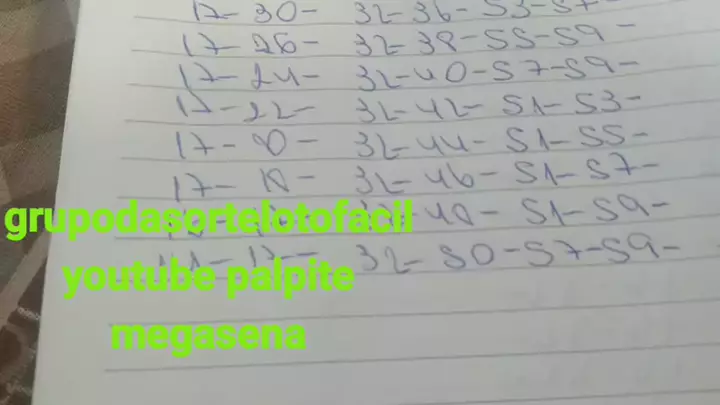 17- 30- 32- 36- 53- 57-
17- 26- 32- 38- 55- 59-
17- 24- 32- 40- 57- 59-
17- 22- 32- 42- 51- 53-
17- 32- 44- 51- 55-
17- 18- 32- 46- 51- 57-
grupodasortelotofacil
51- 59-
youtube palpite
32- 50- 57- 59-
megasena